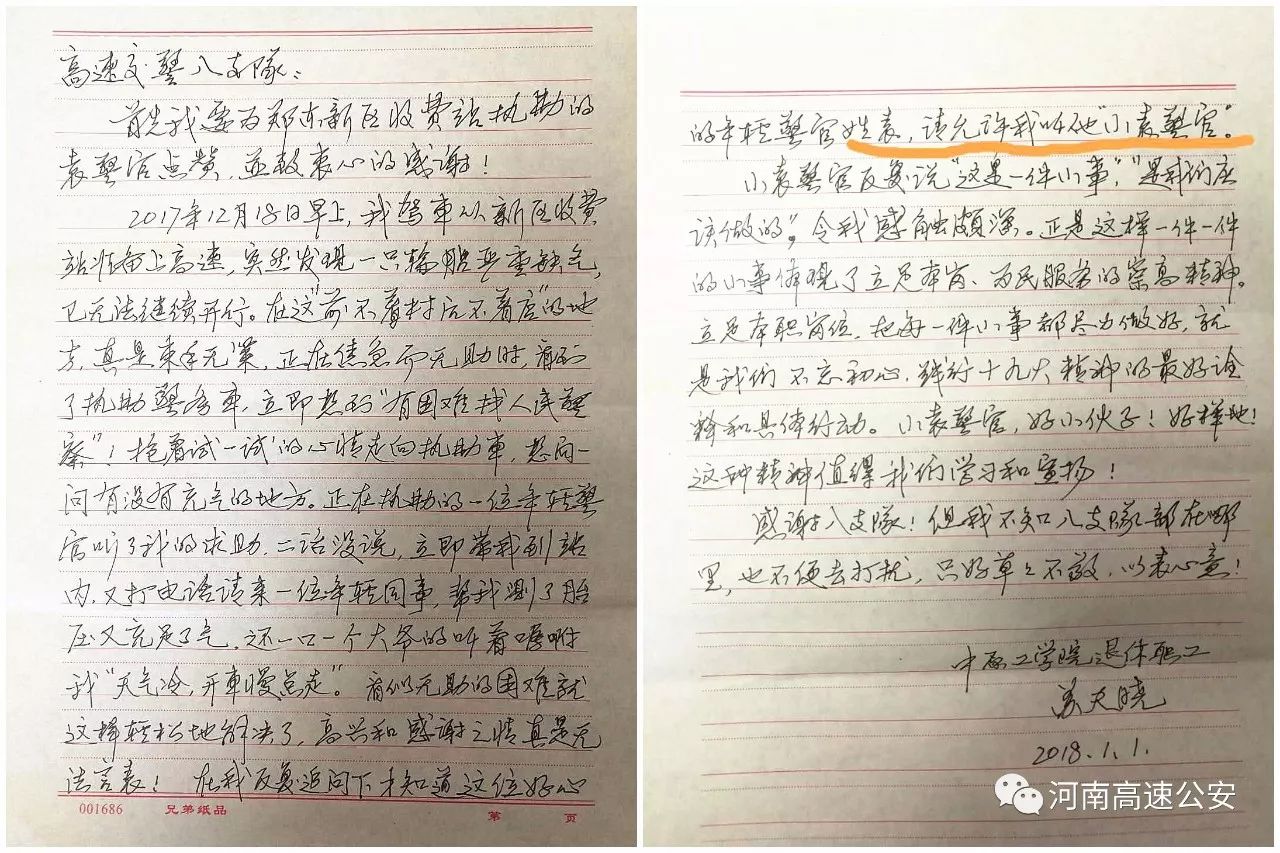 高速交警八支隊：
首先我要为郑东新区收费站执勤的
袁警官点赞，並致衷心的感谢！
2017年12月18日早上，我驾車从新区收费
站准备上高速，突然发现一只轮胎严重缺气，
已无法继续开行。在这"前不着村后不着店"的地
方，真是束手无策，正在焦急而无助时，看到
了执勤警务車，立即想到"有困难找人民警
察"！抱着试一试的心情走向执勤車，想问一
问有没有充气的地方。正在执勤的一位年轻警
官听了我的求助，二话没说，立即带我到站
内，又打电话请来一位年轻同事，帮我测了胎
压又充足了气，还一口一个大爷的叫着嘱咐
我"天气冷，开車慢点走"。看似无助的困难就
这样轻松地解决了，高兴和感谢之情真是无
法言表！在我反复追问下才知道这位好心
001686 兄弟纸品 第 页
的年轻警官姓袁，请允许我叫他"小袁警官"。
小袁警官反复说"这是一件小事"，"是我们应
该做的"。令我感触颇深。正是这样一件一件
的小事体现了立足本岗、为民服务的崇高精神。
立足本职岗位，把每一件小事都尽力做好，就
是我们不忘初心，践行十九大精神的最好诠
释和具体行动。小袁警官，好小伙子！好样地！
这种精神值得我们学习和宣扬！
感谢八支隊！但我不知八支隊部在哪
里，也不便去打扰，只好草草不敬，以表心意！
中原工学院退休职工
天晓
2018.1.1.
河南高速公安